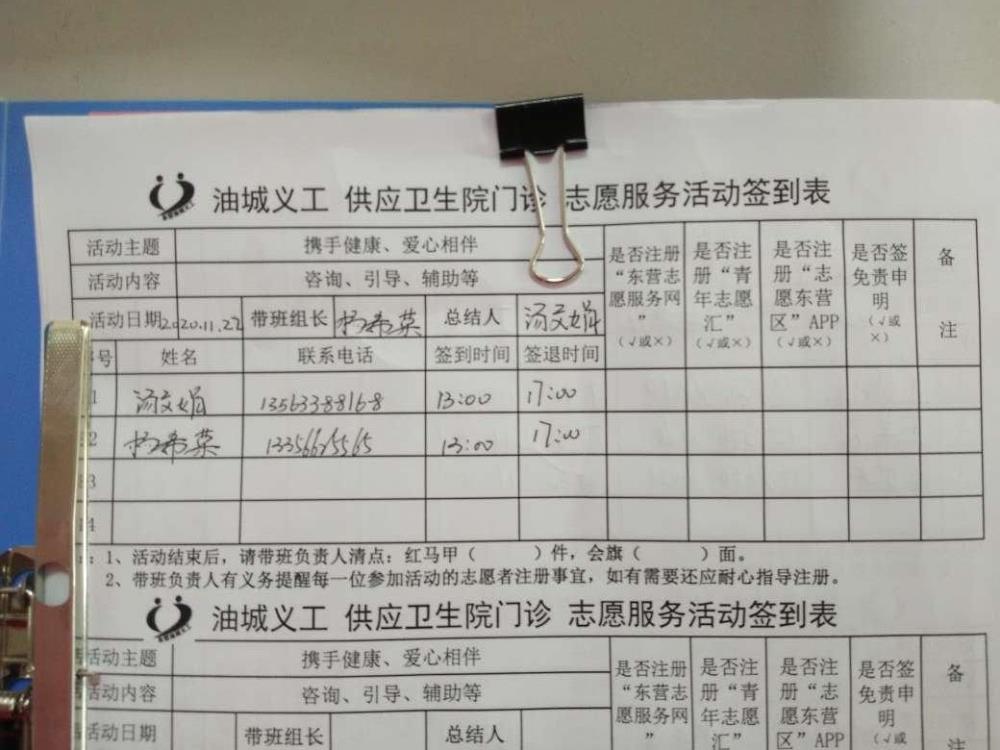 油城义工 供应卫生院门诊 志愿服务活动签到表
活动主题 携手健康、爱心相伴 是否注册“东营志愿服务网”(√或×) 是否注册“青年志愿汇”(√或×) 是否注册“志愿东营区”APP(√或×) 是否签免责申明(√或×) 备注
活动内容 咨询、引导、辅助等
活动日期 2020.11.22 带班组长 杨希英 总结人 汤文娟
号 姓名 联系电话 签到时间 签退时间
1 汤文娟 13563388168 13:00 17:00
2 杨希英 13356625565 13:00 17:00
3
4
：1、活动结束后，请带班负责人清点：红马甲（ ）件，会旗（ ）面。
2、带班负责人有义务提醒每一位参加活动的志愿者注册事宜，如有需要还应耐心指导注册。
油城义工 供应卫生院门诊 志愿服务活动签到表
活动主题 携手健康、爱心相伴 是否注册“东营志愿服务网” 是否注册“青年志愿汇” 是否注册“志愿东营区”APP 是否签免责申明(√或 备注
活动内容 咨询、引导、辅助等
活动日期 带班组长 总结人